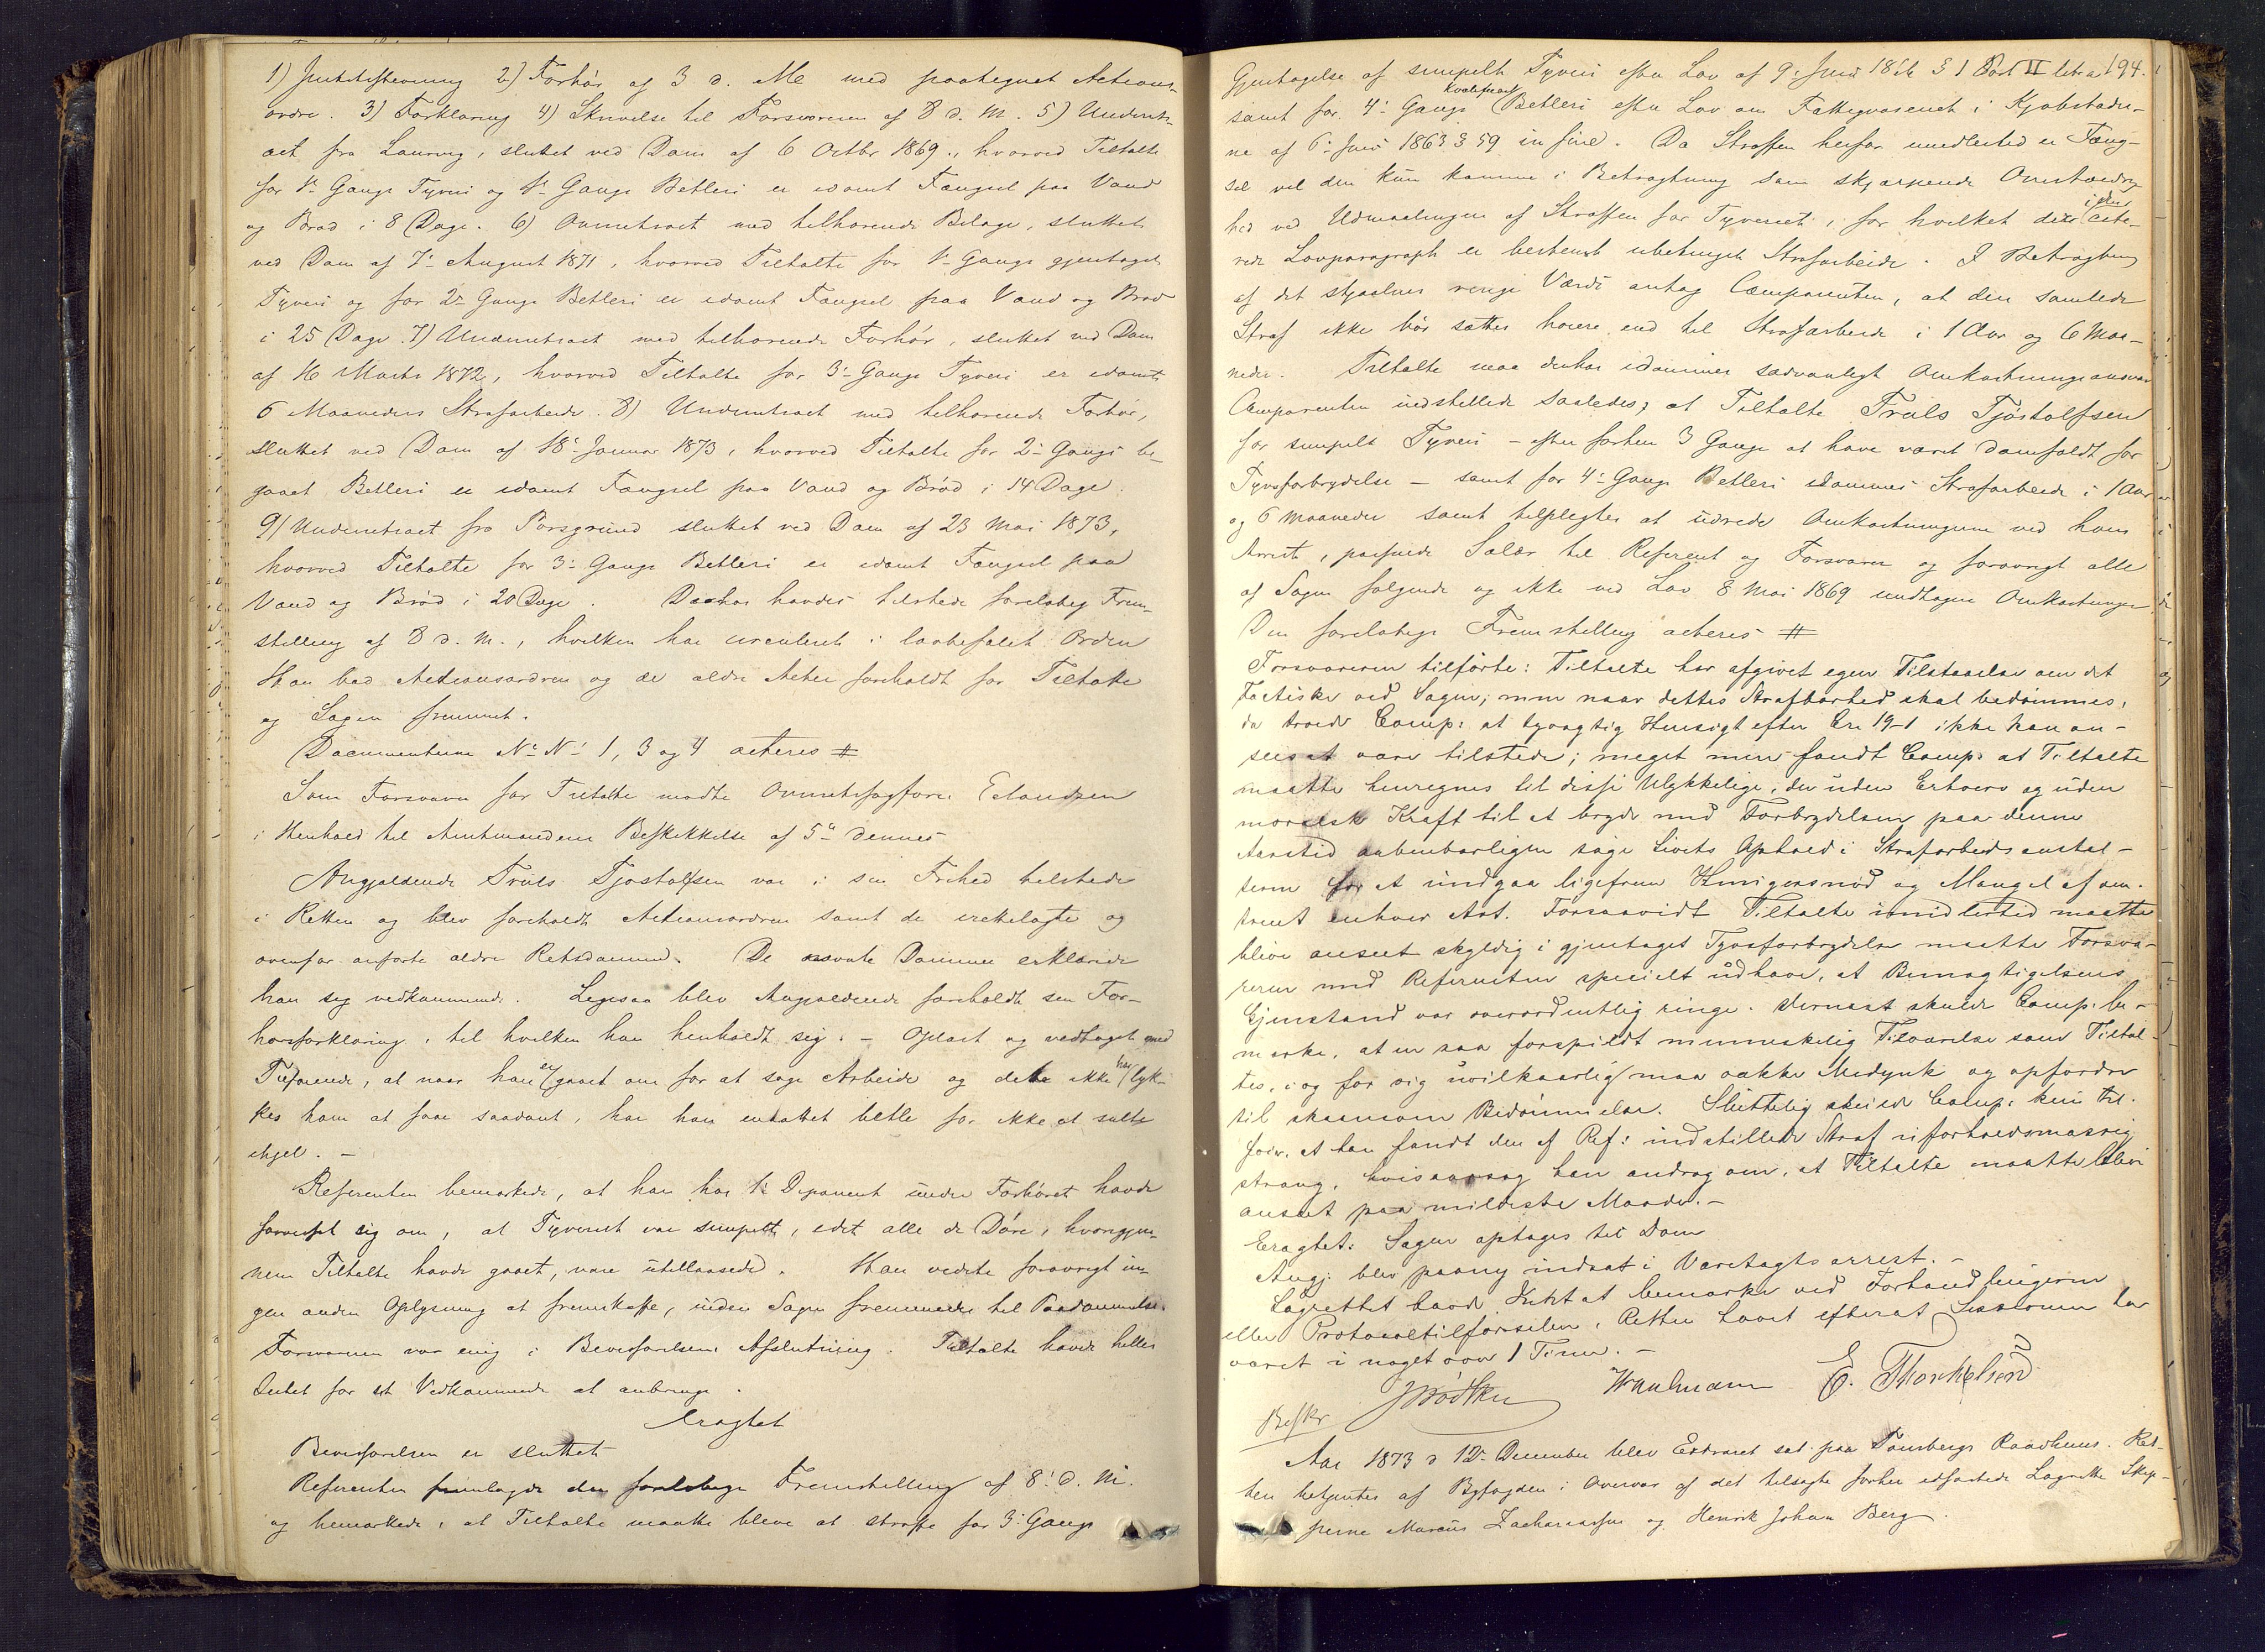 1) Forhør af 3 d. Me med paategnet Actions-
ordre. 3) Forklaring 4) Skrivelse til Forsvareren af 8 d. M. 5) Underrets-
act fra Laurvig, sluttet ved Dom af 6 Octbr 1869, hvorved Tiltalte
for 1ste Gangs Tyveri og 1ste Gangs Betleri er idømt Fængsel paa Vand
og Brød i 8 Dage. 6) med tilhørende Bilage, sluttet
ved Dom af 7de August 1871, hvorved Tiltalte for 1ste Gangs gjentaget
Tyveri og for 2den Gangs Betleri er idømt Fængsel paa Vand og Brød
i 25 Dage. 7) Underretsact med tilhørende Forhør, sluttet ved Dom
af 16 Marts 1872, hvorved Tiltalte for 3die Gangs Tyveri er idømt
6 Maaneders Strafarbeide. 8) Underretsact med tilhørende Forhør,
sluttet ved Dom af 18de Januar 1873, hvorved Tiltalte for 2den Gangs be-
gaaet Betleri er idømt Fængsel paa Vand og Brød i 14 Dage
9) Underretsact fra Porsgrund sluttet ved Dom af 23 Mai 1873,
hvorved Tiltalte for 3die Gangs Betleri er idømt Fængsel paa
Vand og Brød i 20 Dage. Derhos havdes tilstede foreløbig Frem-
stilling af 8 d. M., hvilken har circuleret i lovbefalet Orden
Han bad Actionsordren og de ældre Acter foreholdt for Tiltalte
og Sagen fremmet.
Documenterne No No 1, 3 og 4 acteres #
Som Forsvarer for Tiltalte mødte Overretssagfører Eckardsen
i Henhold til Amtmandens Beskikkelse af 5te dennes
Angjældende Truls Tjøstolfsen var i sin Frihed tilstede
i Retten og blev foreholdt Actionsordren samt de irettelagte og
ovenfor anførte ældre Retsdomme. De Domme erklærede
han sig vedkommende. Ligesaa blev Angjældende foreholdt sin For-
hørsforklaring, til hvilken han henholdt sig. - Oplæst og vedtaget med
Tilføiende, at naar han er gaaet om for at søge Arbeide og dette ikke har lyk-
kes ham at faae saadant, har han maattet betle for ikke at sulte
ihjel. -
Referenten bemærkede, at han hos 1ste Deponent under Forhøret havde
forvisset sig om, at Tyveriet var simpelt, idet alle de Døre, hvorigjen-
nem Tiltalte havde gaaet, vare utillaasede. Han vidste forøvrigt in-
gen anden Oplysning at fremskaffe, inden Sagen fremmedes til Paadømmelse.
Forsvareren var enig i Bevisførelsens Afslutning. Tiltalte havde heller
Intet for sit Vedkommende at anbringe.
Eragtet
Bevisførelsen er sluttet
Referenten fremlagde den foreløbige Fremstilling af 8de d. M.
og bemærkede, at Tiltalte maatte blive at straffe for 3die Gangs
194.
Gjentagelse af simpelt Tyveri efter Lov af 9de Juni § 1 Post II litr a
samt for 4de Gangs kvalificeret Betleri efter Lov om Fattigvæsenet i Kjøbstæder-
ne af 6te Juni 1863 § 59 in fine. Da Straffen herfor umiddelbart er Fæng-
sel vil den kun komme i Betragtning som skjærpende Omstændig-
hed ved Udmaalingen af Straffen for Tyveriet, for hvilket der i den cite-
rede Lovparagraph er bestemt ubetinget Strafarbeide. I Betragtning
af det stjaalnes ringe Værdi antog Comparenten, at den samlede
Straf ikke bør sættes høiere end til Strafarbeide i 1 Aar og 6 Maa-
neder. Tiltalte maa derhos idømmes sædvanligt Omkostningsansvar
Comparenten indstillede saaledes; at Tiltalte Truls Tjøstolfsen
for simpelt Tyveri - efter forhen 3 Gange at have været domfældt for
Tyvsforbrydelse - samt for 4de Gangs Betleri idømmes Strafarbeide i 1 Aar
og 6 Maaneder samt tilpligtes at udrede Omkostningerne ved hans
Arrest, passende Salær til Referent og Forsvarer og forøvrigt alle
af Sagen følgende og ikke ved Lov 8 Mai 1869 undtagne Omkostninger
Den foreløbige Fremstilling acteres #
Forsvareren tilførte: Tiltalte har afgivet egen Tilstaaelse om det
Factiske ved Sagen; men naar dettes Strafbarhed skal bedømmes,
da troede Comp: at tyvagtig Hensigt efter Crl 19-1 ikke kan an-
sees at være tilstede; meget mere fandt Comp: at Tiltalte
maatte henregnes til disse Ulykkelige, der uden Erhverv og uden
moralsk Kraft til at bryde med Forbrydelsen paa denne
Aarstid aabenbarligen søge Livets Ophold i Strafarbeidsanstal-
terne for at undgaa ligefrem Hungersnød og Mangel af om-
trent enhver Art. Forsaavidt Tiltalte imidlertid maatte
blive anseet skyldig i gjentaget Tyvsforbrydelse maatte Forsva-
reren med Referenten specielt udhæve, at Bemægtigelsens
Gjenstand var overordentlig ringe. Dernæst skulde Comp: be-
mærke, at en saa forspildt menneskelig Tilværelse som Tiltal-
tes, i og for sig uvilkaarlig maa vække Medynk og opfordre
til skaansom Bedømmelse. Sluttelig skulde Comp: kun til-
føie, at han fandt den af Ref: indstillede Straf uforholdsmæssig
streng, hvisaarsag han androg om, at Tiltalte maatte blive
anseet paa mildeste Maade. -
Eragtet: Sagen optages til Dom
Angj: blev paany indsat i Varetægtsarrest. -
Lagrettet havde Intet at bemærke ved Forhandlingerne
eller Protocoltilførselen. Retten hævet efterat Sessionen har
varet i noget over 1 Time. -
E. Thorkelsen
Beskr
Aar 1873 d 12te December blev Extraret sat paa Tønsbergs Raadhuus. Ret-
ten betjentes af Byfogden i Overvær af det tilsagte forhen edfæstede Lagrette Skip-
perne Marcus Zachariassen og Henrik Johan Berg.